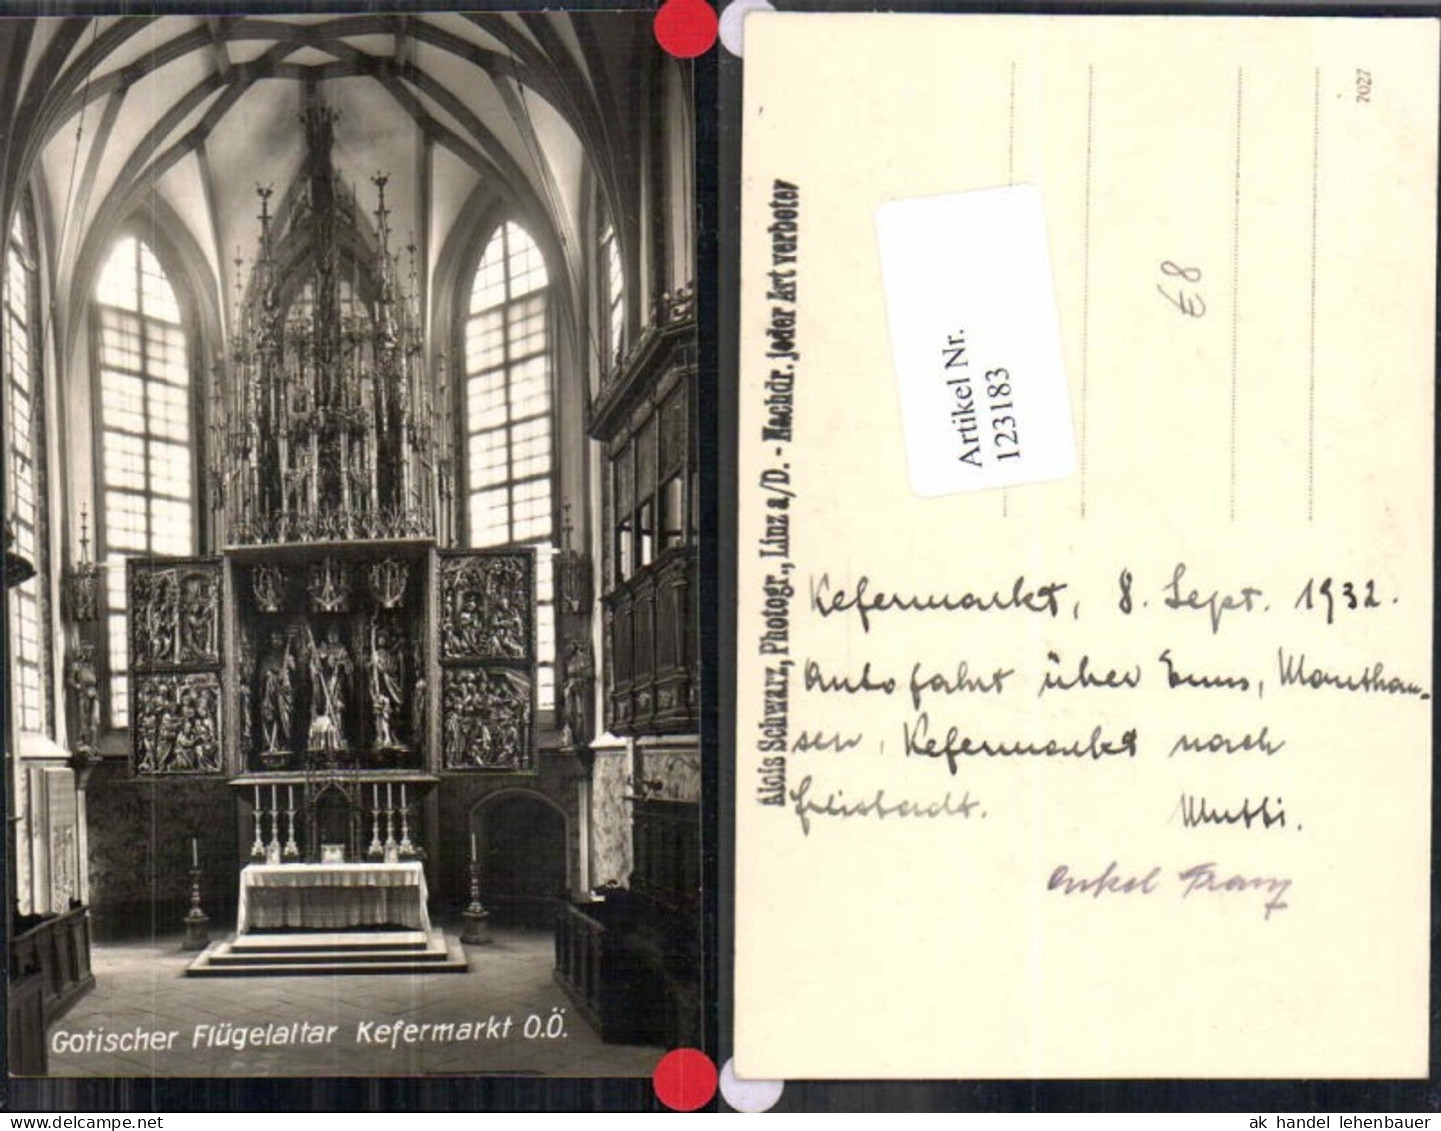 Gotischer Flügelaltar Kefermarkt O.Ö.
Alois Schwarz, Photogr., Linz a/D. - Nachdr. jeder Art verboten
7027
Artikel Nr.
123183
€8
Kefermarkt, 8. Sept. 1932.
Autofahrt über Enns, Mauthau-
sen, Kefermarkt nach
Freistadt. Mutti.
Onkel Franz
ak handel lehenbauer